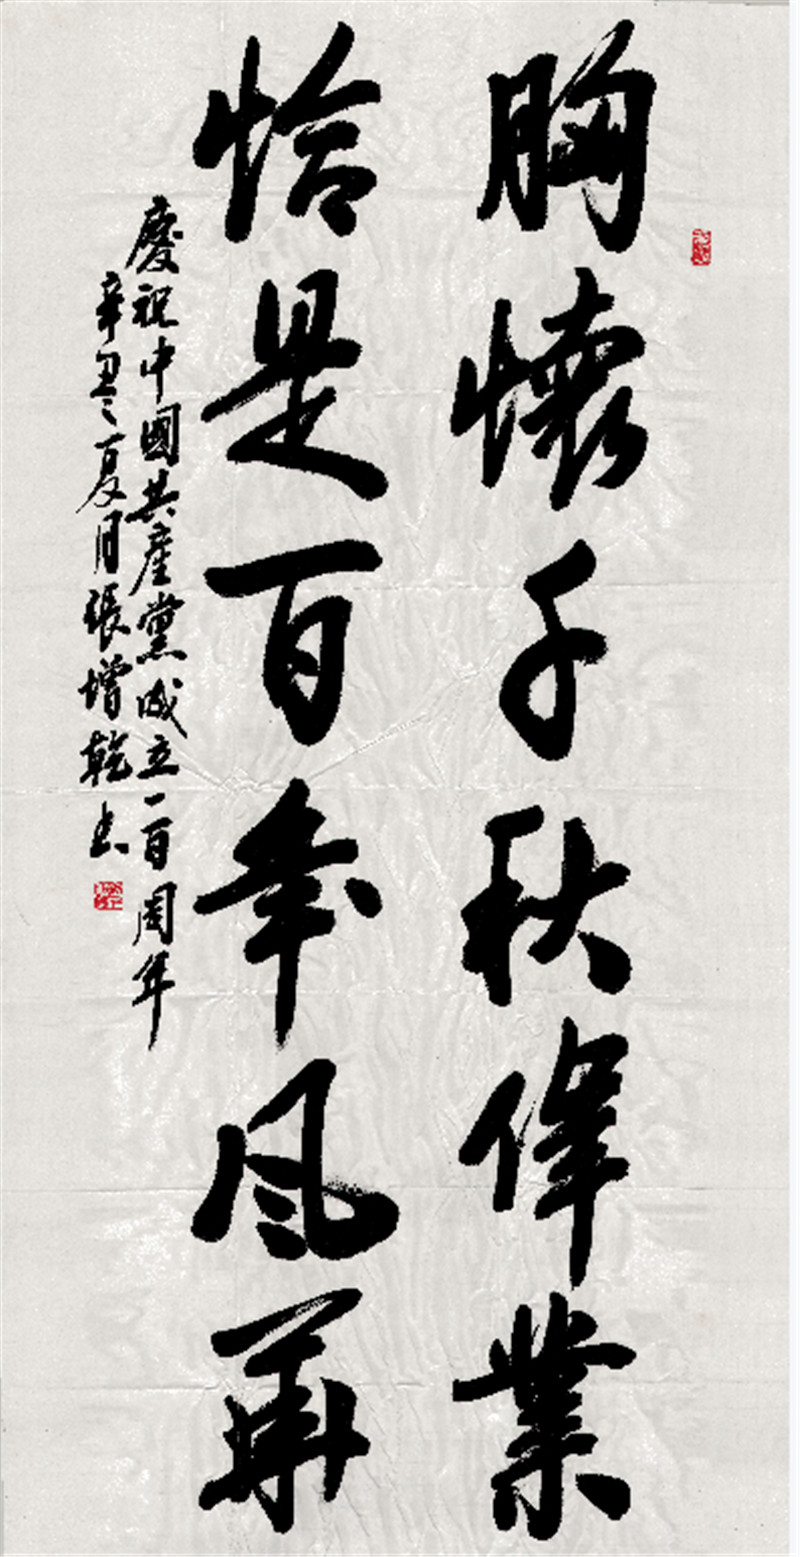 胸懷千秋偉業
恰是百年风華
慶祝中國共產黨成立一百周年
辛丑年夏月張增乾书